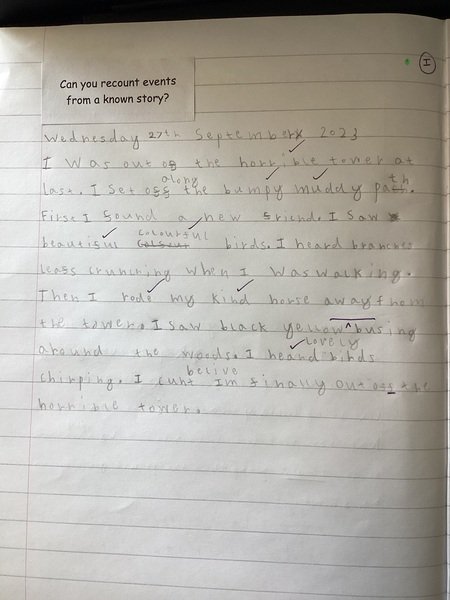 Can you recount events
from a known story?
I
Wednesday 27th September 2023
I was out of the horrible tower at
along
last. I set off the bumpy muddy path.
First I found a new friend. I saw
colourful
beautiful birds. I heard branches
leafs crunching when I was walking.
Then I rode my kind horse away from
the tower. I saw black yellow busing
lovely
around the woods. I heard birds
belive
chirping. I cunt Im finally out off the
horrible tower.